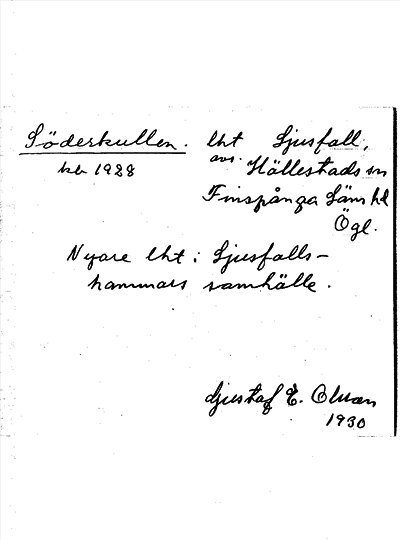 Söderkullen. lht Ljusfall,
kb 1928 avs. Hällestads sn
Finspånga läns hd
Ögl.
Nyare lht i Ljusfalls-
hammars samhälle.
Gustaf E. Olsson
1930